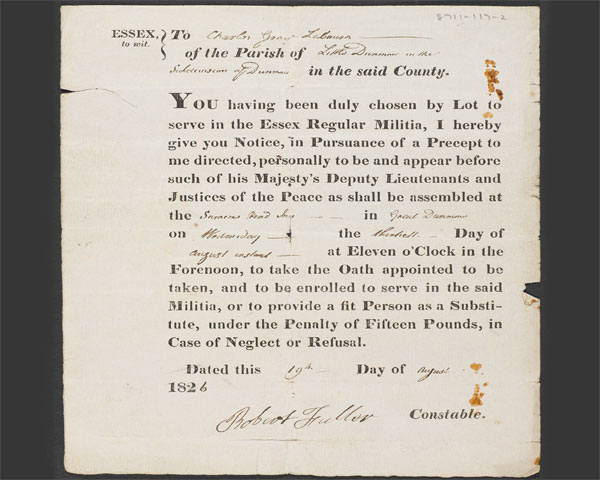 8711-117-2
ESSEX, } To Charles Gray Labourer
to wit. of the Parish of Little Dunmow in the
Subdivision of Dunmow in the said County.
YOU having been duly chosen by Lot to
serve in the Essex Regular Militia, I hereby
give you Notice, in Pursuance of a Precept to
me directed, personally to be and appear before
such of his Majesty's Deputy Lieutenants and
Justices of the Peace as shall be assembled at
the Saracens Head Inn in Great Dunmow
on Wednesday the Day of
August instant at Eleven o'Clock in the
Forenoon, to take the Oath appointed to be
taken, and to be enrolled to serve in the said
Militia, or to provide a fit Person as a Substi-
tute, under the Penalty of Fifteen Pounds, in
Case of Neglect or Refusal.
Dated this 19th Day of August
1826
Robert Fuller Constable.